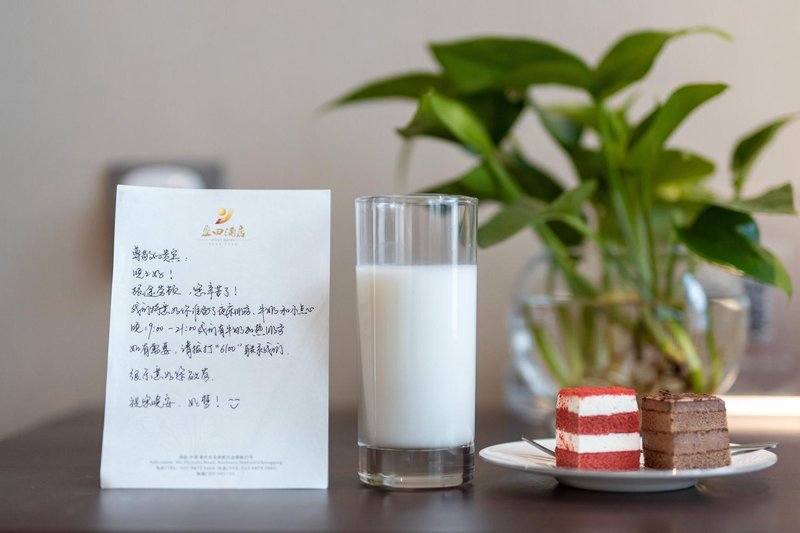 盈田酒店
尊敬的贵宾:
晚上好!
旅途劳顿,您辛苦了!
我们特意为你准备了夜床服务,牛奶和小点心
晚19:00-21:00我们有牛奶加热服务
如有需要,请拨打"6100"联系我们.
很乐意为您效劳.
祝您晚安、好梦!